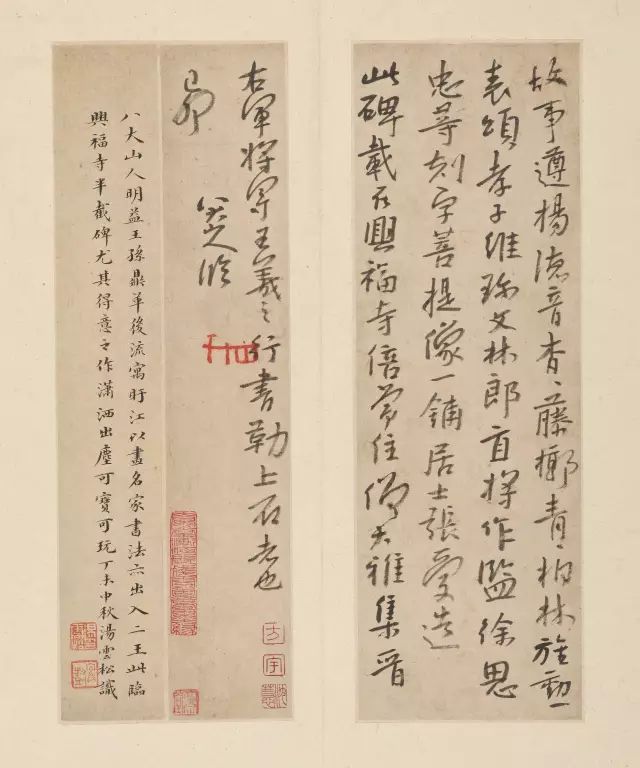 故事遵楊德音杳〻藤鄉青〻柏林旌勳
表頌孝子維孫文林郎直將作監徐思
忠等刻字菩提像一鋪居士張愛造
此碑載在興福寺倍常住僧大雅集晉
右軍將軍王羲之行書勒上石者也
己卯
八大山人臨
方宇
八大山人明益王孫鼎革後流寓盱江以畫名家書法亦出入二王此臨
興福寺半截碑尤其得意之作瀟洒出塵可寶可玩丁未中秋湯雲松識